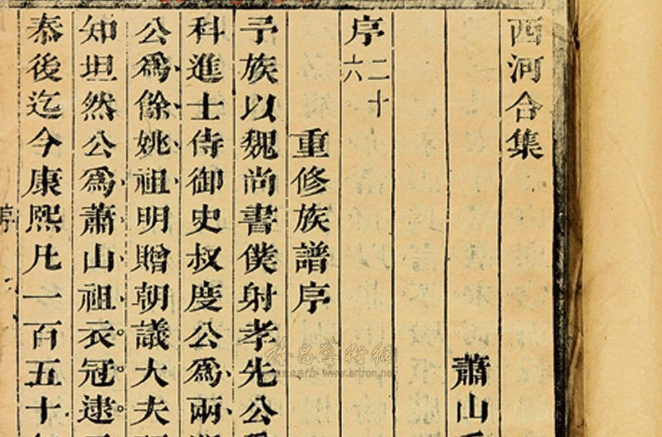 西河合集
蕭山
序二十六
重修族譜序
予族以魏尚書僕射孝先公爲
科進士侍御史叔度公爲兩
公爲餘姚祖明贈朝議大夫
知坦然公爲蕭山祖衣冠逮
泰後迄今康熙凡一百五十
序